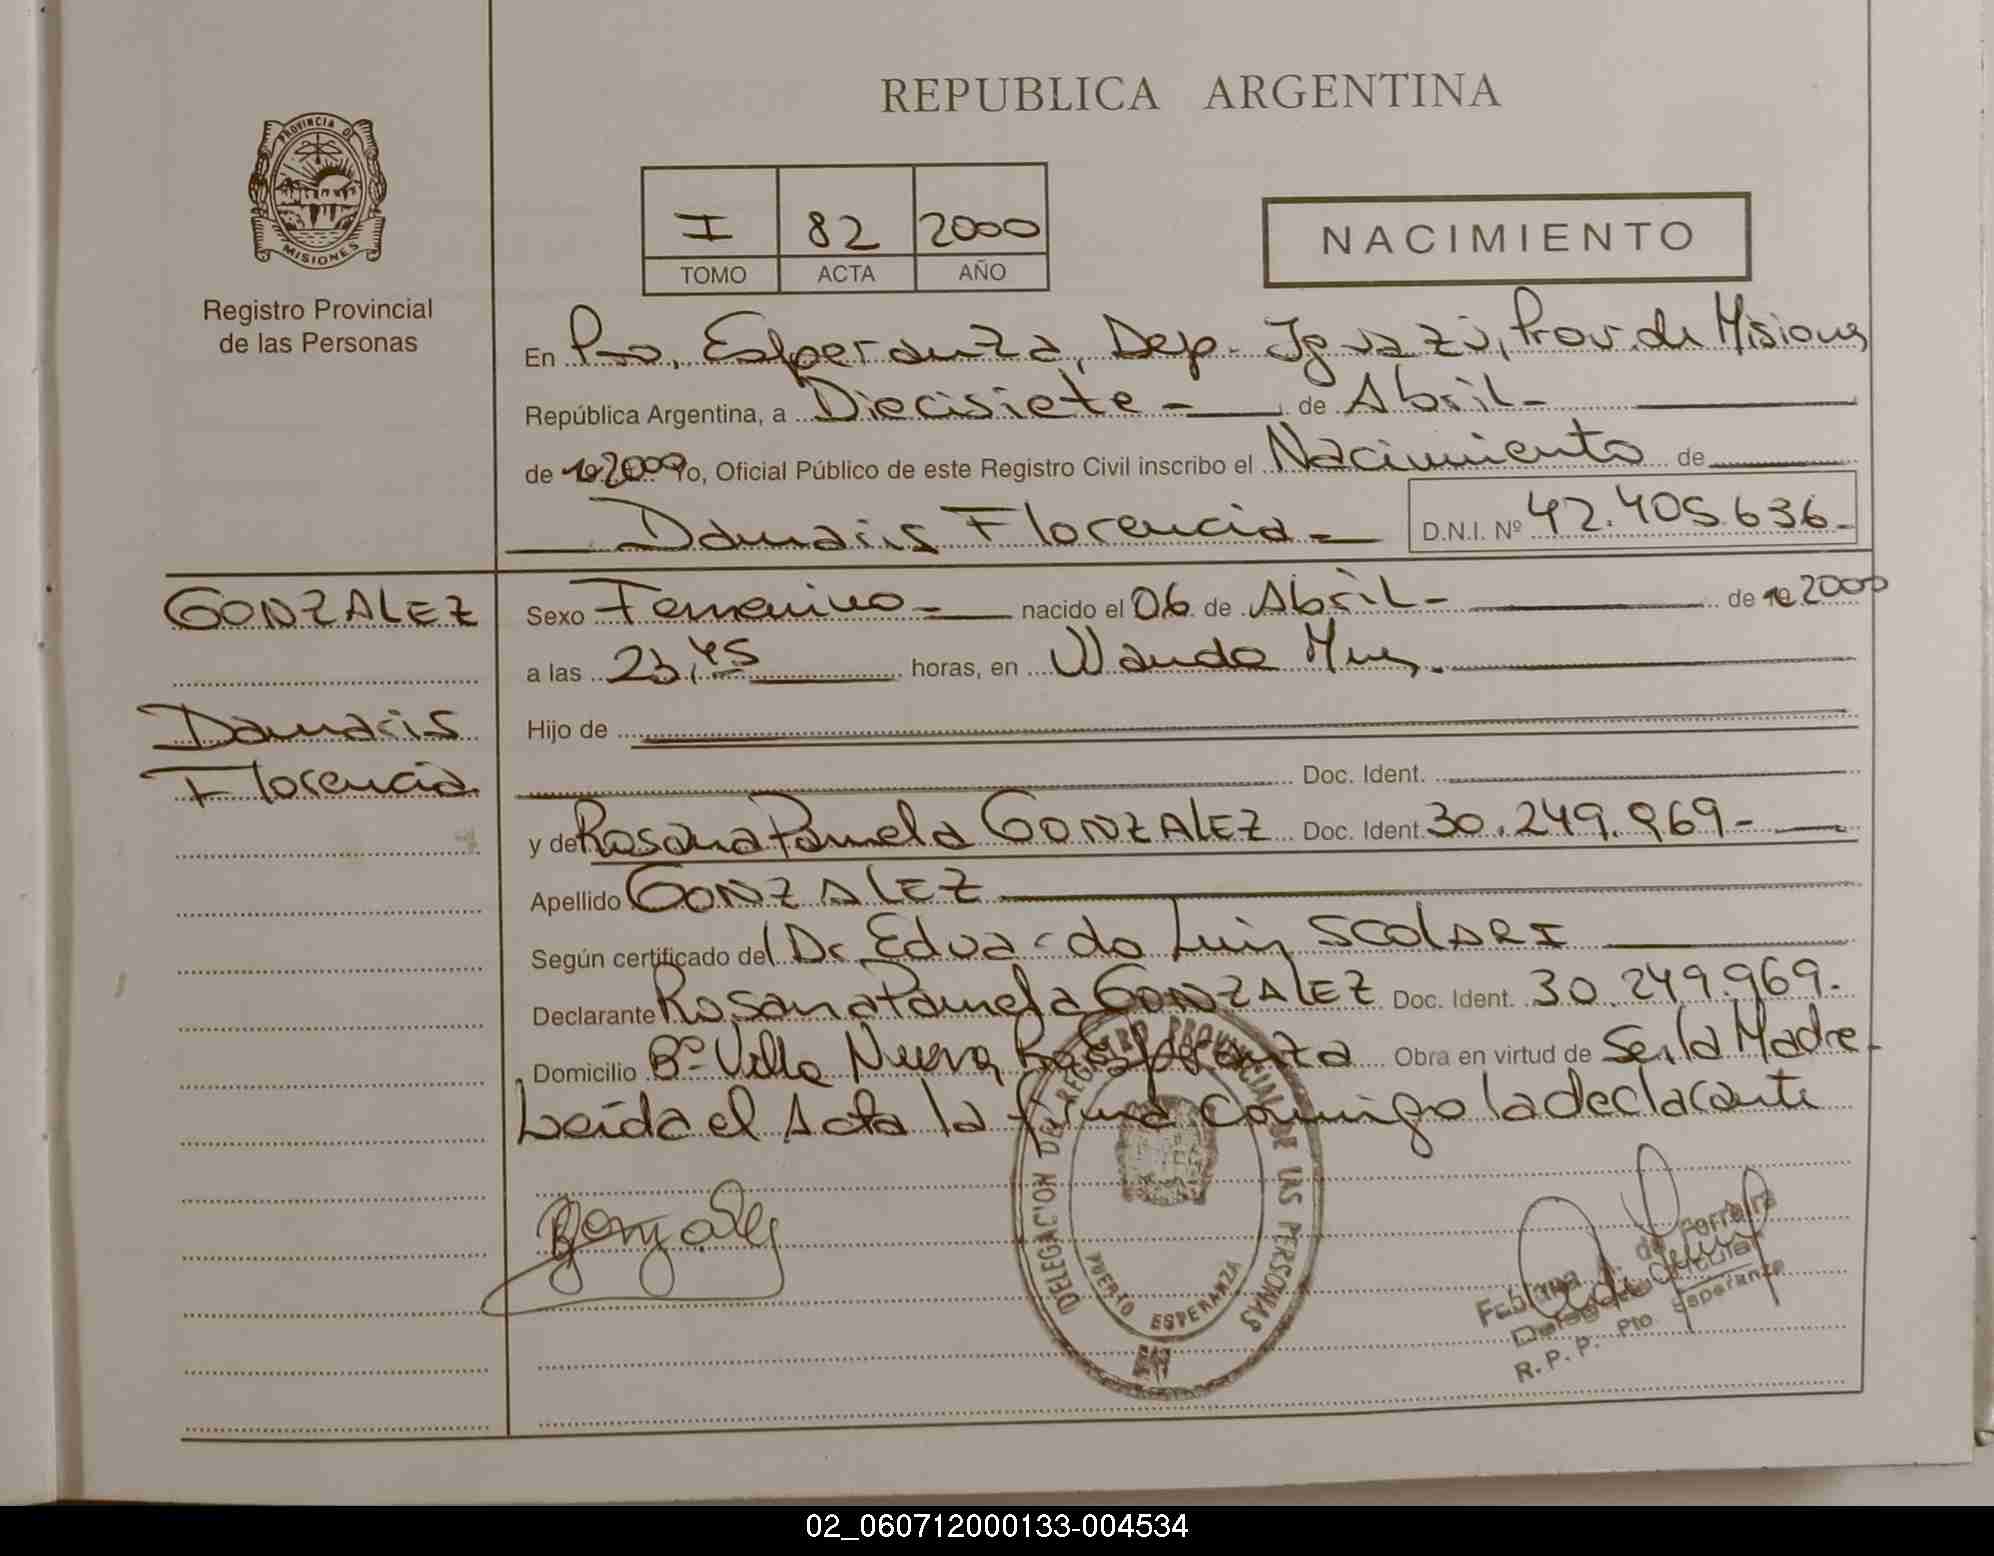 REPUBLICA ARGENTINA
PROVINCIA DE
MISIONES
Registro Provincial
de las Personas
I 82 2000
TOMO ACTA AÑO
NACIMIENTO
En Pto. Esperanza, Dep. Iguazú, Prov. de Misiones
República Argentina, a Diecisiete - de Abril -
de 2000 yo, Oficial Público de este Registro Civil inscribo el Nacimiento de
Damaris Florencia - D.N.I. Nº 42.405.636-
GONZALEZ
Damaris
Florencia
Sexo Femenino - nacido el 06 de Abril - de 2000
a las 23,45 horas, en Wanda Mnes.
Hijo de
Doc. Ident.
y de Rosana Pamela GONZALEZ Doc. Ident. 30.249.969-
Apellido GONZALEZ
Según certificado del Dr Eduardo Luis SCOLARI
Declarante Rosana Pamela GONZALEZ Doc. Ident. 30.249.969.
Domicilio Bº Villa Nueva, Pto Esperanza Obra en virtud de Ser la Madre-
Leída el Acta la firma conmigo la declarante
Gonzalez
DELEGACION DEL REGISTRO PROVINCIAL DE LAS PERSONAS
PUERTO ESPERANZA
Fabiana de Ferreira
Delegada Titular
R.P.P. Pto Esperanza
02_060712000133-004534